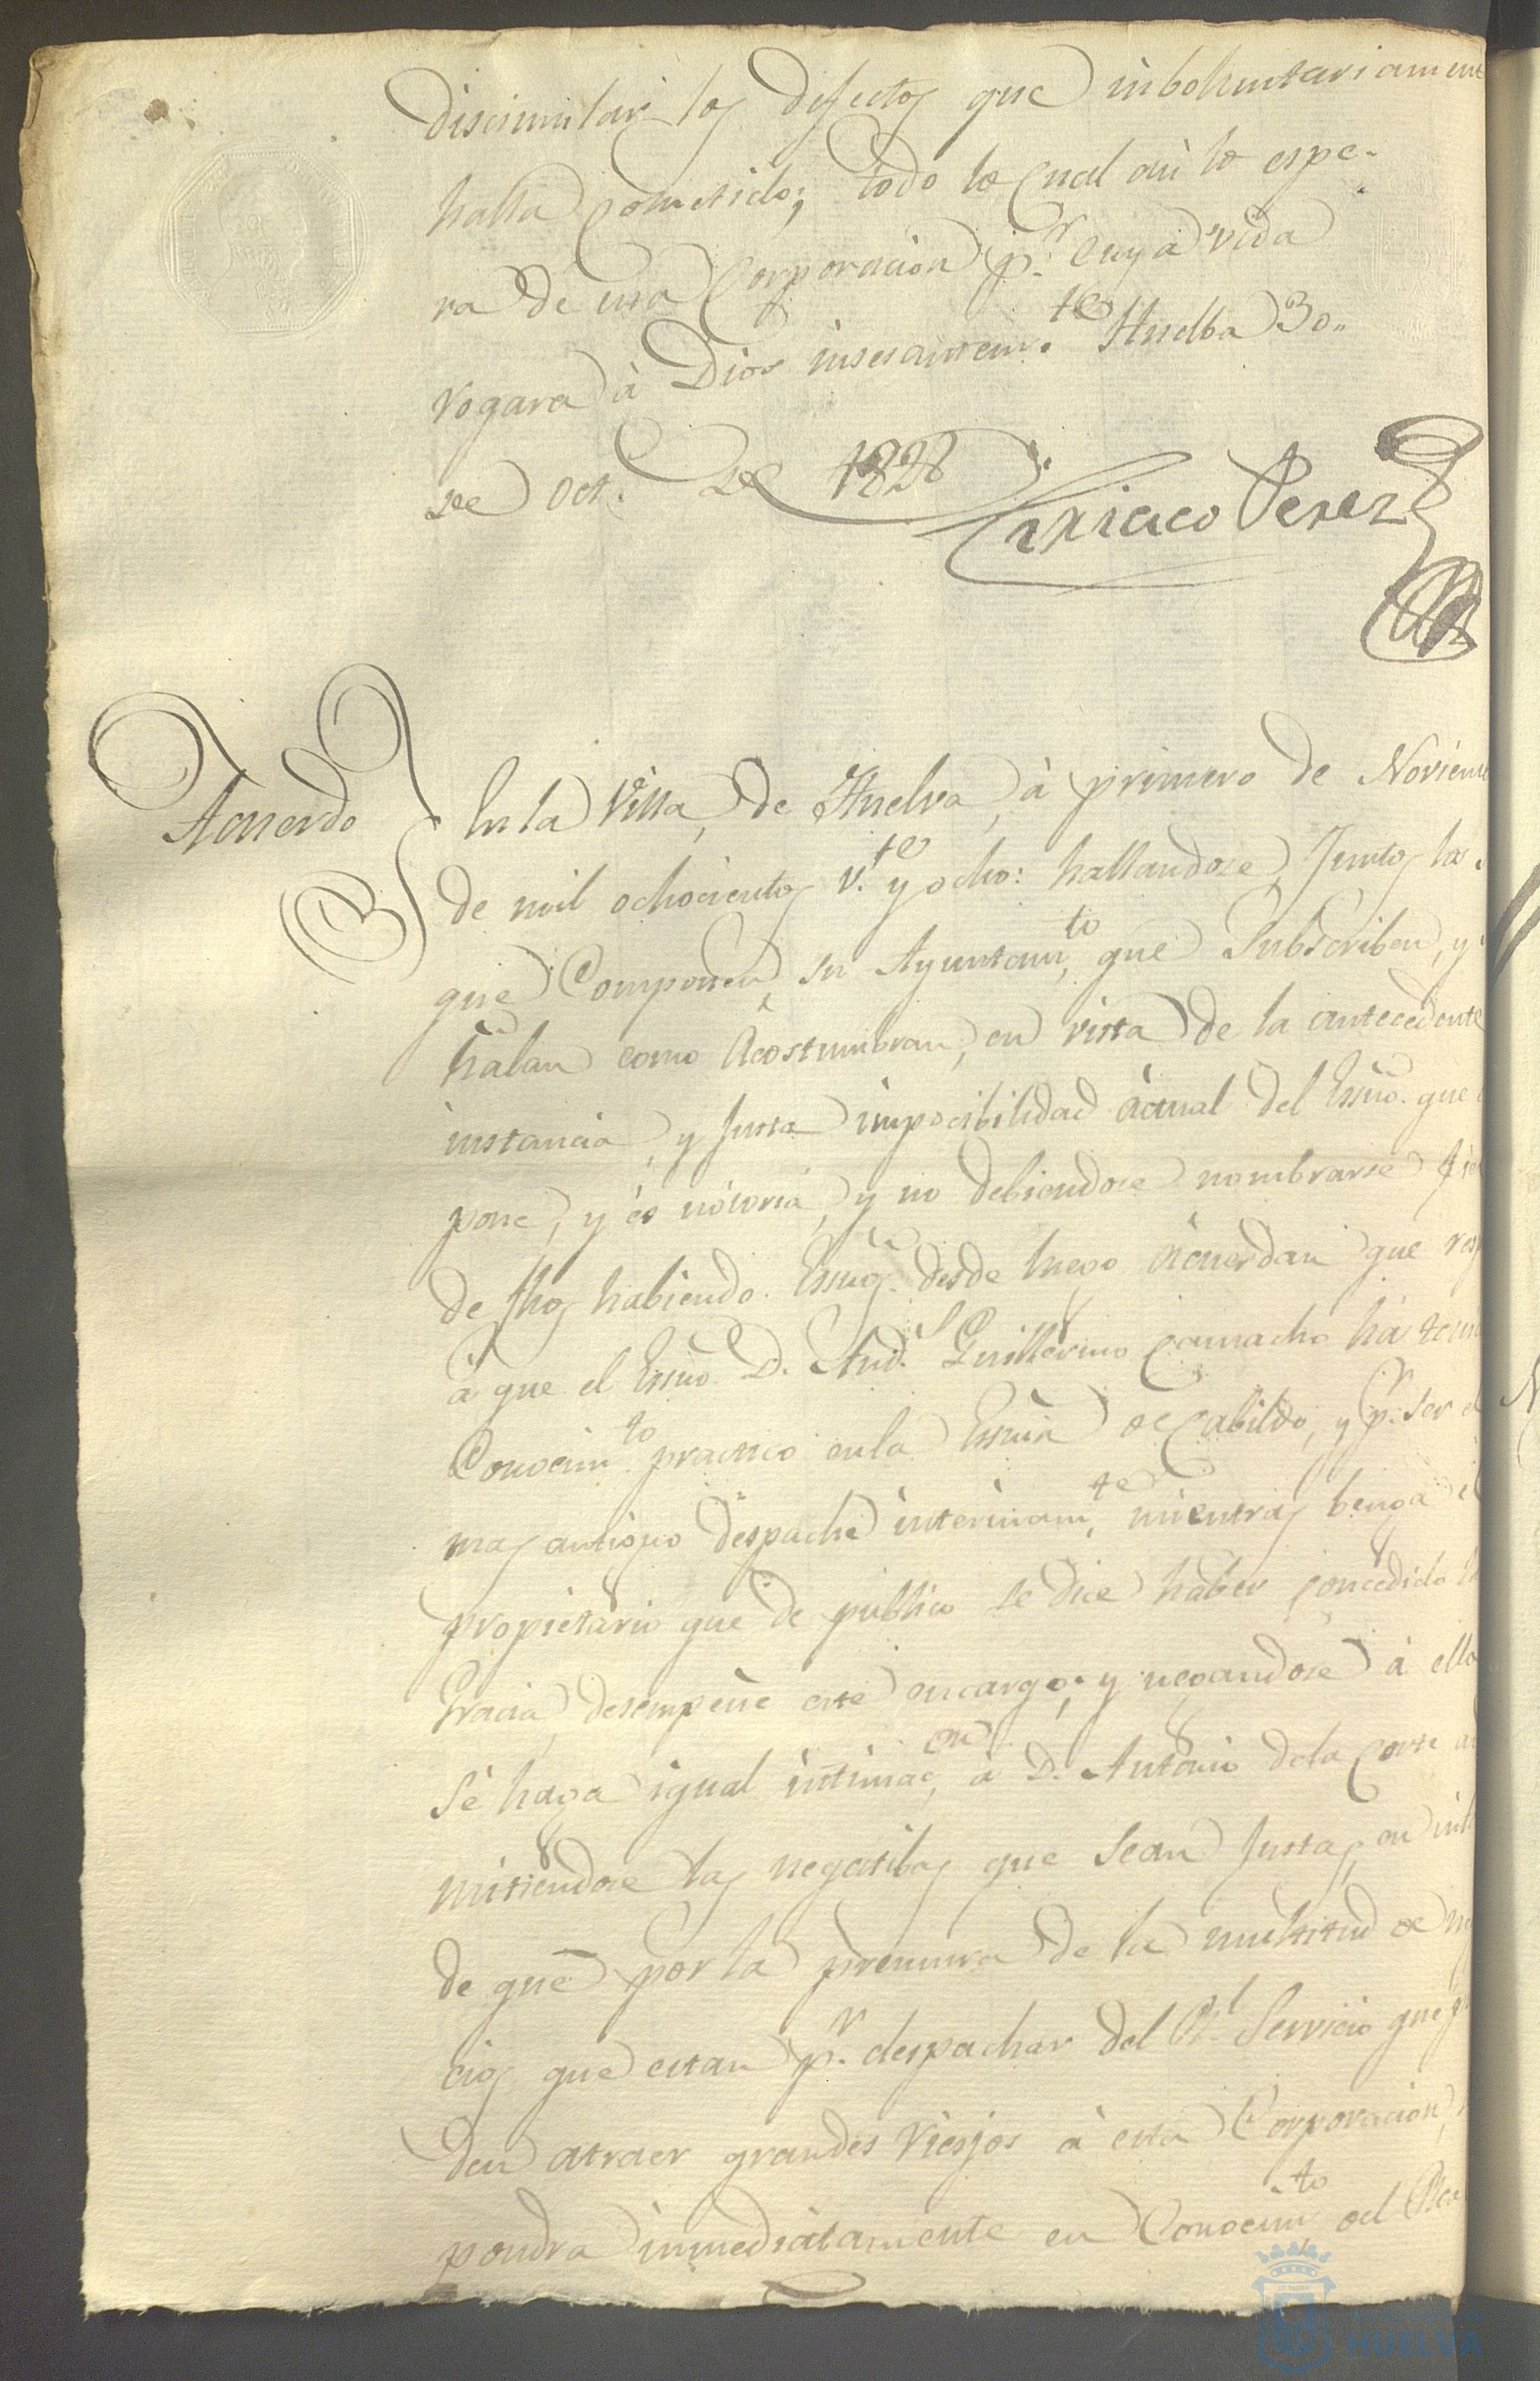 Discimular los defectos que inboluntariament
halla cometido; todo lo cual asi lo espe-
ra de esta Corporacion p.r cuya vida
rogara à Dios insesantem.te Huelba 30,,
de Oct. de 1828
Ciriaco Perez
Acuerdo
En la Villa, de Huelva, à primero de Noviem
de mil ochocientos v.te y ocho: hallandose, Juntos los
que Componen su Ayuntam.to, que Subscriben, y
ñalan como Acostumbran, en vista de la antecedente
instancia, y Justa impocibilidad àctual del Essno. que
pone, y és nótoria, y no debiendose nombrarse fiel
de fhos habiendo Essnos. desde luego àcuerdan que resp
à que el Essno. D. And.s Guillermo Camacho hà tenid
Conocim.to practico en la Essnia de Cabildo, y p.r ser el
mas antiguo despache interinam.te, mientras benga él
propietario que de publico se dice haber concedido
Gracia, desempeñe este encargo; y negandose à ello
Sé haga igual intimac.on, à D. Antonio dela Corte ad
mitiendose las negatibas que Sean Justas, en int
de que por la premura de la multitud de
cios que estan p.r despachar del R.l Servicio que p
den atraer grandes Riesjos à esta Corporacion,
pondra inmediatamente en Conocim.to del
HUELVA